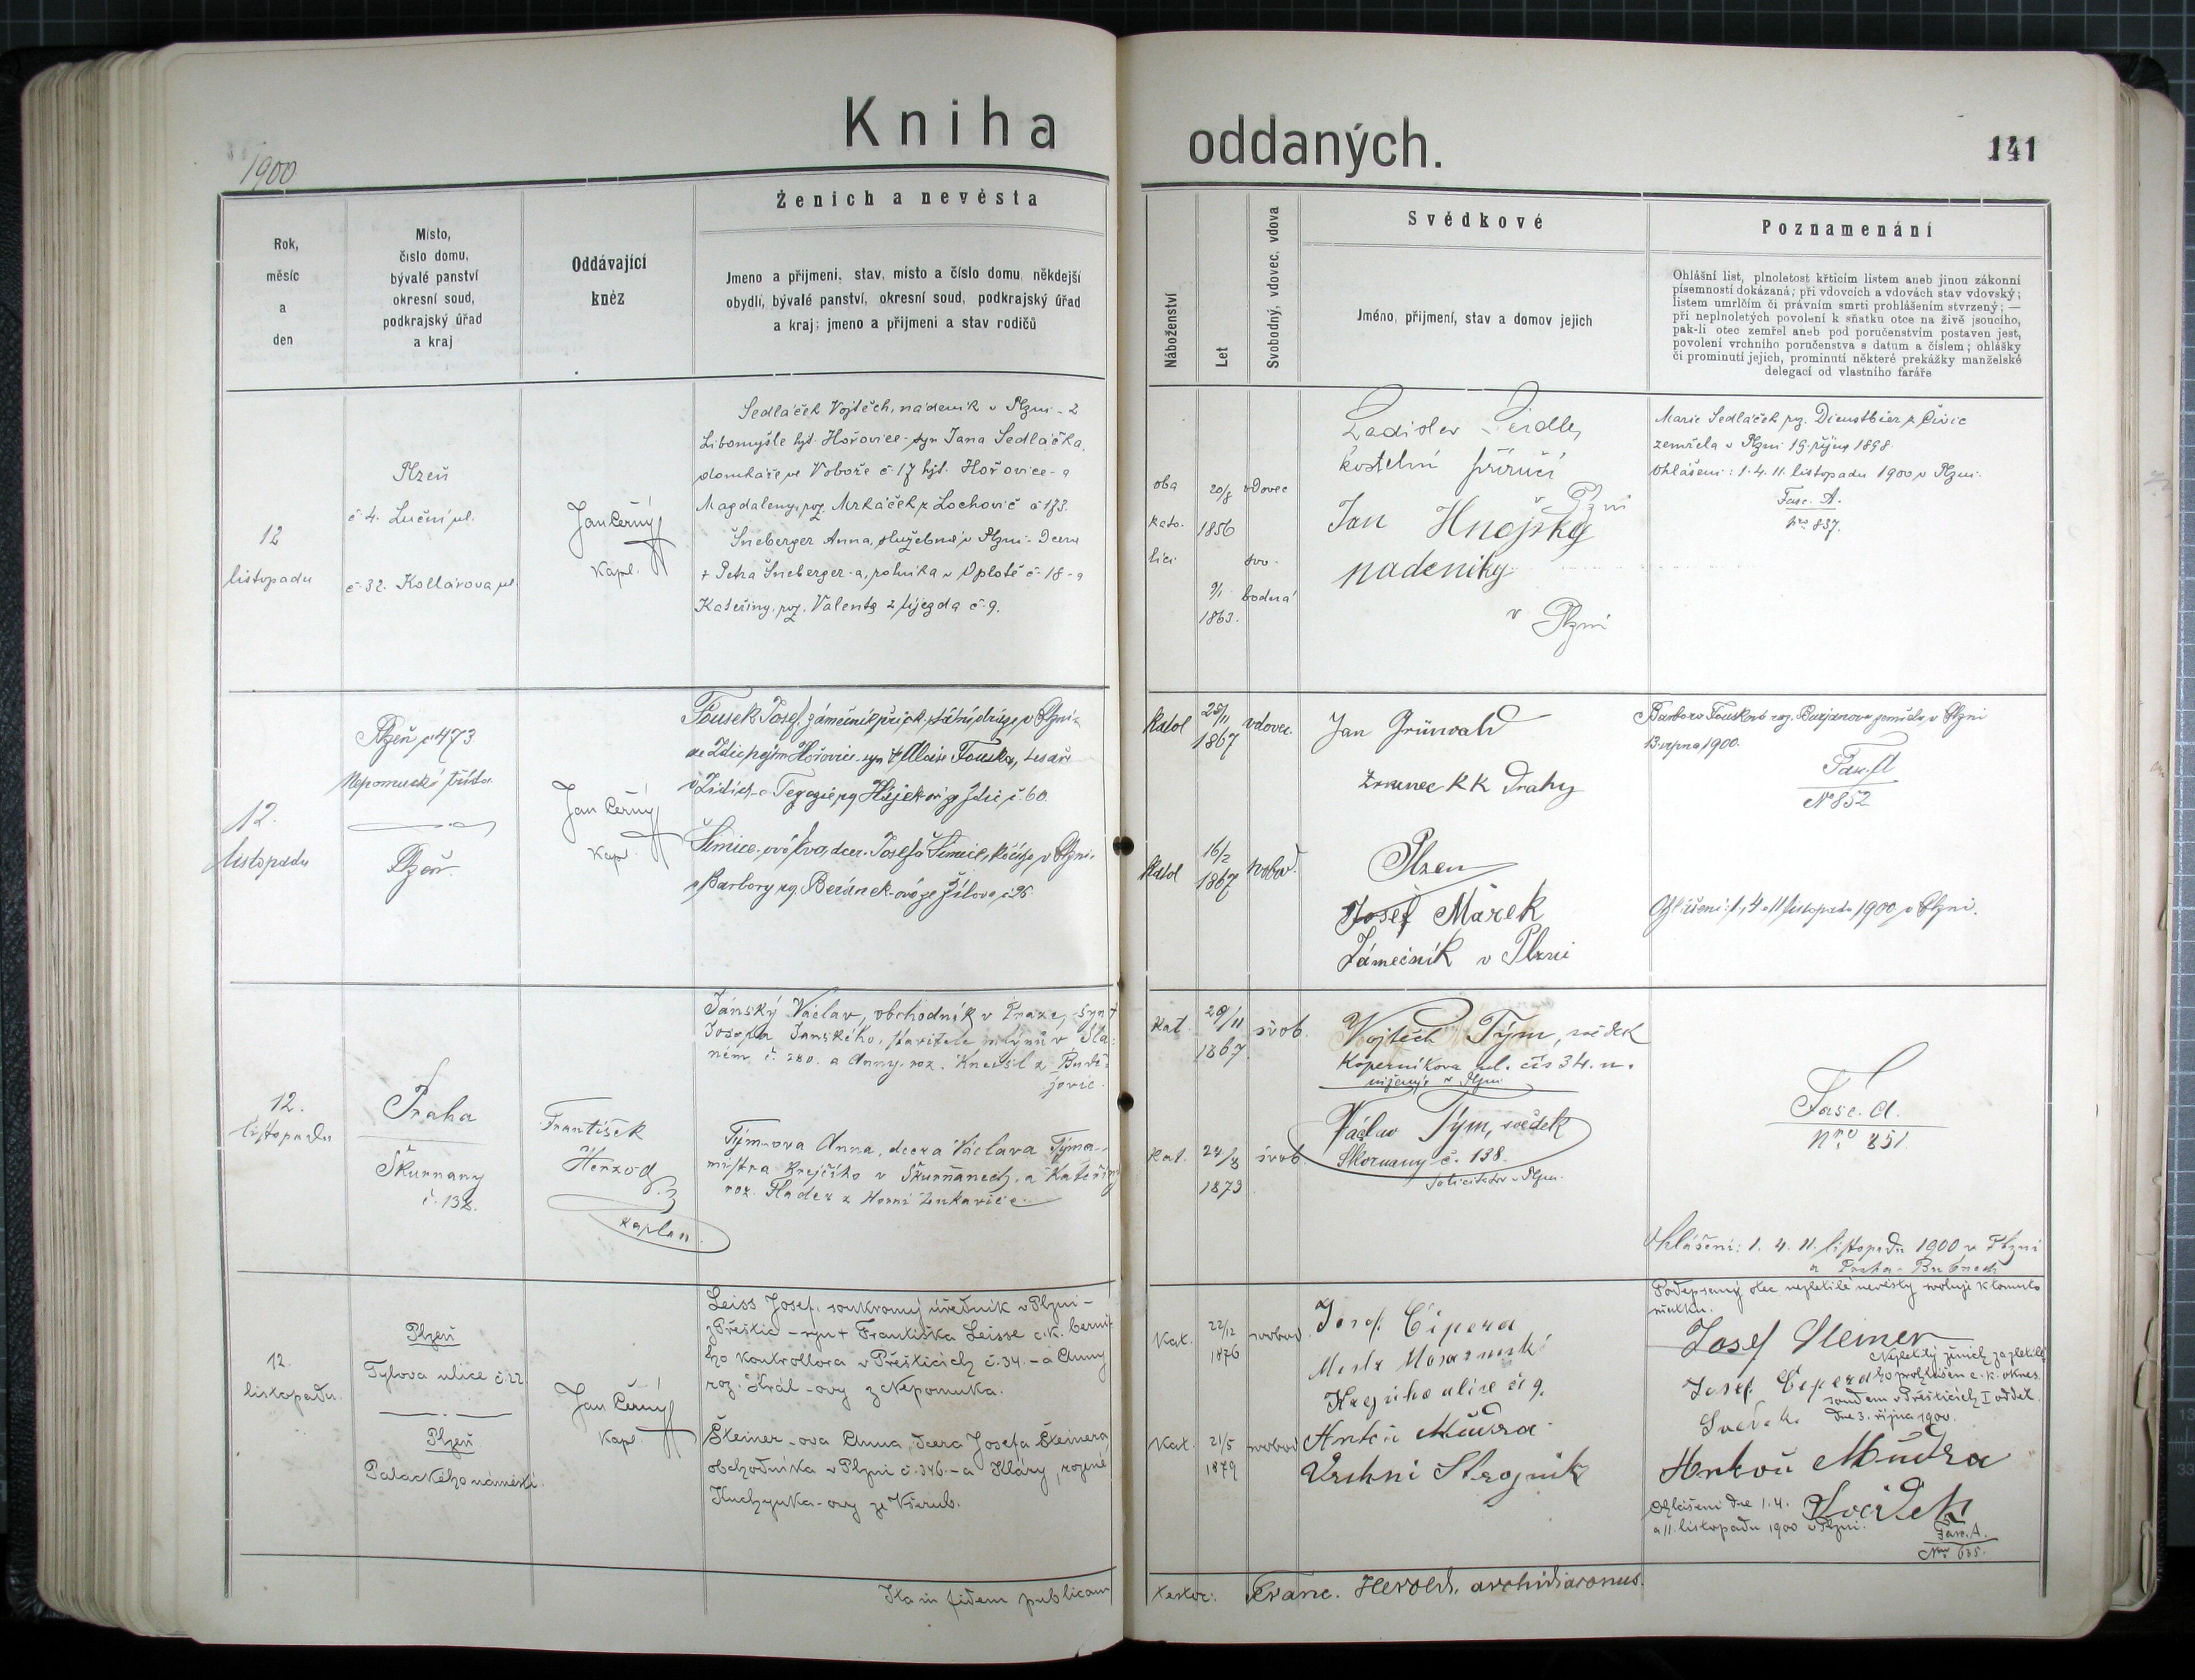 Kniha oddaných.
141
1900
Ženich a nevěsta
Svědkové
Poznamenání
Rok,
měsíc
a
den
Místo,
číslo domu,
bývalé panství
okresní soud,
podkrajský úřad
a kraj
Oddávající
kněz
Jmeno a přijmení, stav, místo a číslo domu, někdejší
obydlí, bývalé panství, okresní soud, podkrajský úřad
a kraj; jmeno a přijmení a stav rodičů
Náboženství
Let
Svobodný, vdovec, vdova
Jméno, přijmení, stav a domov jejich
Ohlášní list, plnoletost křticím listem aneb jinou zákonní
písemností dokázaná; při vdovcích a vdovách stav vdovský;
listem umrlčím či právním smrti prohlášením stvrzený; —
při neplnoletých povolení k sňatku otce na živě jsoucího,
pak-li otec zemřel aneb pod poručenstvím postaven jest,
povolení vrchního poručenstva s datum a číslem; ohlášky
či prominutí jejich, prominutí některé prekážky manželské
delegací od vlastního faráře
12
listopadu
Plzeň
č 4. Luční ul.
č 32. Kollárova ul.
Jan Černý
Kapl.
Sedláček Vojtěch, nádeník v Plzni - z
Libomyšle hjt. Hořovice - syn Jana Sedláčka,
domkáře ve Voboře č 17 hjt. Hořovice - a
Magdaleny, roz. Mrkáček z Lochovic č 173.
Šneberger Anna, služebná v Plzni - Dcera
+ Petra Šneberger-a, rolníka v Oplotě č 18 - a
Kateřiny, roz. Valenta z Újezda č 9.
oba
kato-
líci
20/8
1856
9/1
1863.
vdovec
svo-
bodná
Ladislav
kostelní příručí
v Plzni
Jan Hnojský
nadeniky
v Plzni
Marie Sedláček roz. Dienstbier z Čivic
zemřela v Plzni 19. října 1898.
Ohlášeni: 1. 4. 11. listopadu 1900 v Plzni.
Fasc. A.
Nro 837.
12.
listopadu
Plzeň č 473
Nepomucká třída
Plzeň
Jan Černý
Kapl.
Fousek Josef, zámečník při ck. státní dráze, v Plzni -
ze Zdic, hejtm. Hořovice - syn + Aloise Fouska, tesaře
v Zdicích - a Terezie roz. Hájek-ové z Zdic č. 60.
Šimice-ová Eva, dcer. Josefa Šimice, kočího v Plzni -
a Barbory roz. Beránek-ové ze Žilova č 26.
Katol
Katol
28/11
1867
16/2
1867
vdovec
svobod.
Jan Grünwald
Zřízenec KK Drahy
Plzen
Josef Mařek
Zámečník v Plzni
Barbora Fousková roz. Burjanova zemřela v Plzni
srpna 1900.
Fasc. A
No 852
Ohlášeni: 1, 4 a 11 listopadu 1900 v Plzni.
12.
listopadu
Praha
Škurnany
č. 138.
František
Herzog
kaplan.
Jánský Václav, obchodník v Praze, syn +
Josefa Janského, stavitele mlýnů v Sla-
ném č. 280. a Anny, roz. Knettil z Budě-
jovic.
Týmova Anna, dcera Václava Týma -
mistra krejčího v Škurňanech, a Kateřiny
roz. Flader z Horní Lukavice
Kat.
Kat.
28/11
1867.
24/8
1873
svob.
svob.
Vojtěch Tým, svědek
Koperníkova ul. čís 34. n.
v Plzni
Václav Tým, svědek
Skorňany č. 138.
solicitator v Plzni.
Fasc. A.
Nro 851
Ohlášeni: 1. 4. 11. listopadu 1900 v Plzni
a Praha - Bubneč
12.
listopadu.
Plzeň
Tylova ulice č. 22.
Plzeň
Palackého náměstí.
Jan Černý
Kapl.
Leiss Josef, soukromý úředník v Plzni -
z Přeštic - syn + Františka Leisse c. k. berní-
ho kontrollora v Přešticích č. 34. - a Anny
roz. Král-ovy z Nepomuka.
Šteiner-ova Anna, dcera Josefa Šteinera,
obchodníka v Plzni č. 346. - a Kláry, rozené
Kuchynka-ovy ze Všerub.
Kat.
Kat.
22/12
1876
21/5
1879
svobod
svobod
Josef Cipera
Mistr Mosaznický
ulice či 9.
Antoň Mudra
Vrchní Strojník
Podepsaný otec nezletilé nevěsty svoluje k tomuto
sňatku.
Josef Steiner
Nezletilý ženich za zletilé-
ho prohlášen c. k. okres.
soudem v Přešticích I oddel.
dne 3. října 1900.
Josef Cipera
Svědek
Antoň Mudra
Svědek
Ohlášeni dne 1. 4.
a 11. listopadu 1900 v Plzni.
Fasc. A.
Nro 635.
Ita in fidem publicam
testor: Franc. Herold, archidiaconus.